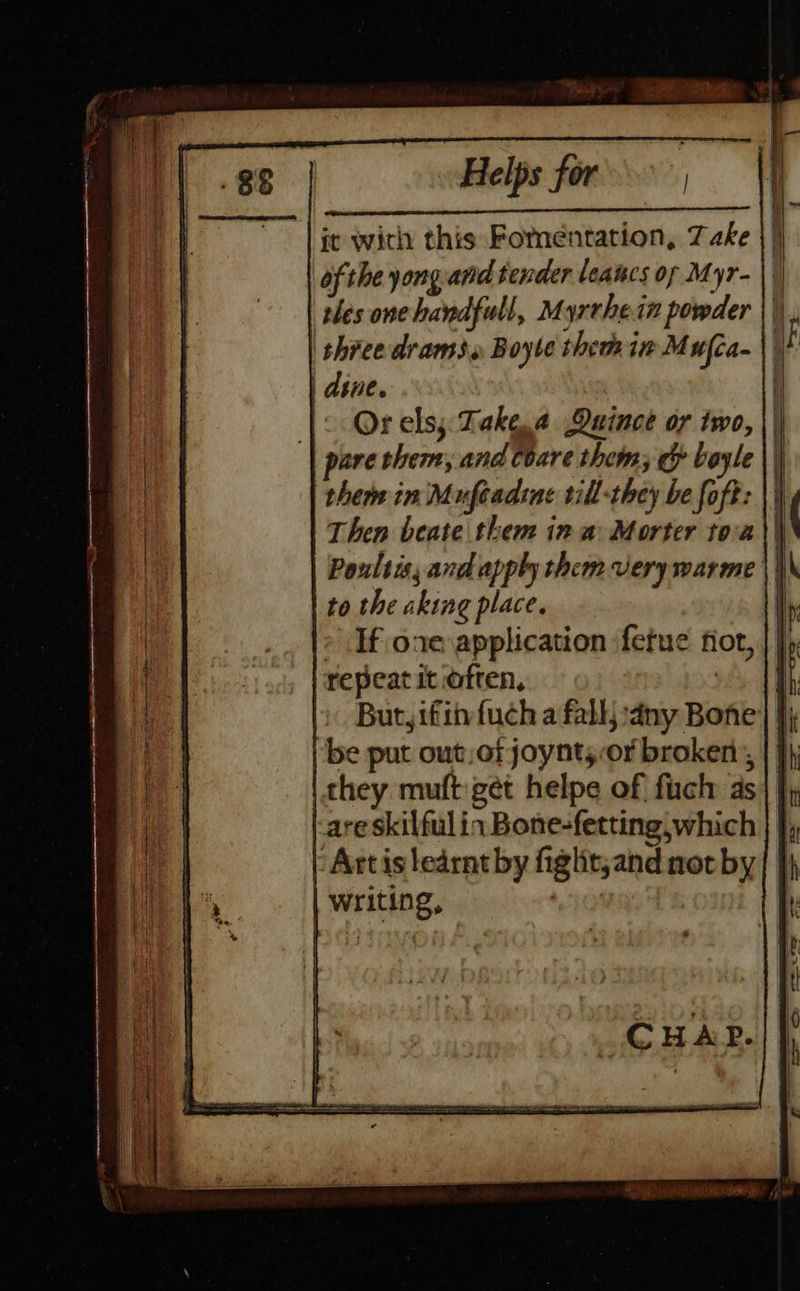 88
Helps for
it with this Fomentation, Take
of the yong and tender leaues of Myr-
tles one handfull, Myrrhe in powder
three drams. Boyle them in Muſca-
dine.
Or els, Take, a Quince or two,
pare them, and coare them, & boyle
them in Muſcadine till they be ſoft:
Then beate them in a Morter to a
Poultis, and apply them very warme
to the aking place.
If one application ſerue not,
repeat it often.
But, if in ſuch a fall, any Bone
be put out of joynt, or broken,
they muſt get helpe of ſuch as
are skilful in Bone-ſetting, which
Art is learnt by ſight, and not by
writing.
CHAP.